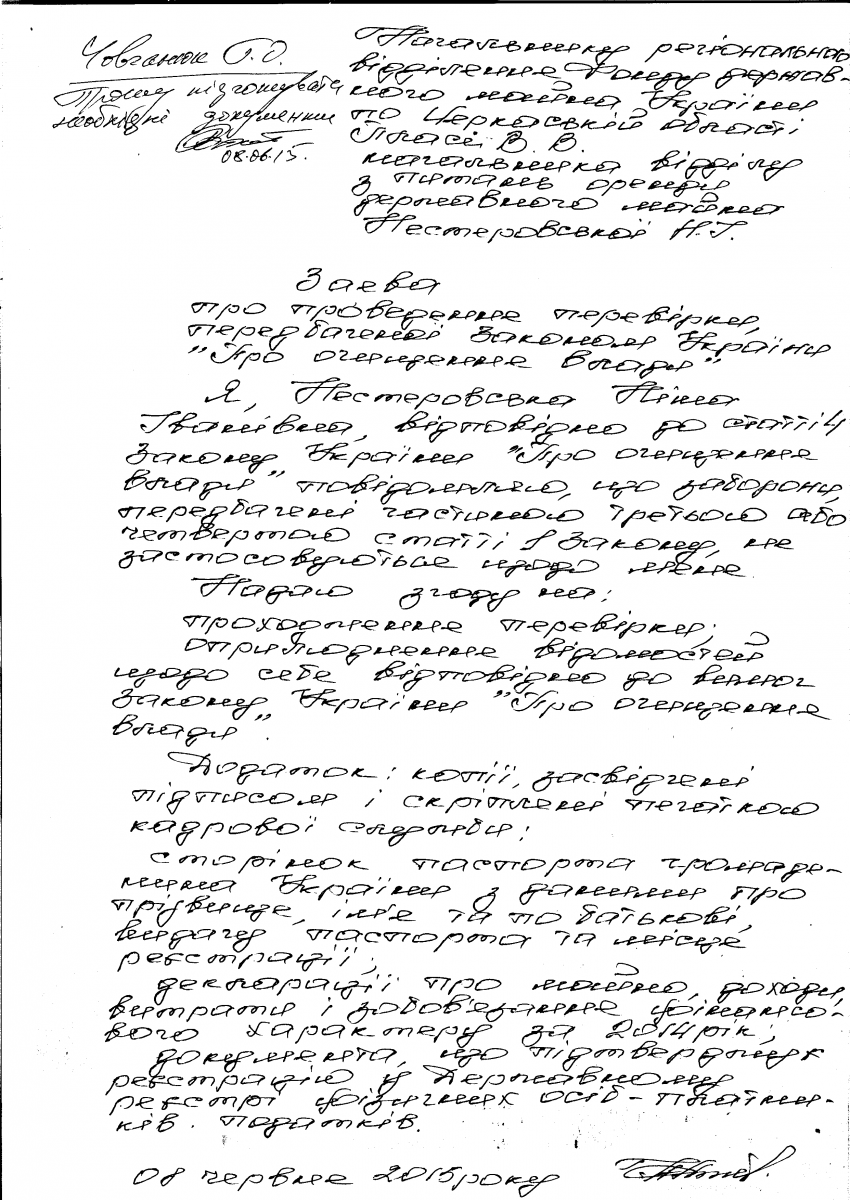 Човганюк Г. О.
Прошу підготувати
необхідні документи
08.06.15.
Начальнику регіонального
відділення Фонду держав-
ного майна України
по Черкаській області
В. В.
начальника відділу
з питань оренди
державного майна
Нестеровської Н.І.
Заява
про проведення перевірки,
передбаченої Законом України
"Про очищення влади"
Я, Нестеровська Ніна
Іванівна, відповідно до статті 4
Закону України "Про очищення
влади" повідомляю, що заборони,
передбачені частиною третьою або
четвертою статті 1 Закону, не
застосовуються щодо мене.
Надаю згоду на:
проходження перевірки;
оприлюднення відомостей
щодо себе відповідно до вимог
Закону України "Про очищення
влади".
Додаток: копії, засвідчені
підписом і скріплені печаткою
кадрової служби:
сторінок паспорта громадя-
нина України з даними про
прізвище, ім'я та по батькові,
видачу паспорта та місце
реєстрації;
декларації про майно, доходи,
витрати і зобов'язання фінансо-
вого характеру за 2014 рік;
документа, що підтверджує
реєстрацію у Державному
реєстрі фізичних осіб - платни-
ків податків.
08 червня 2015 року